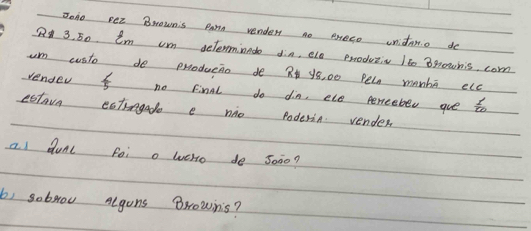 João fez Brownis para vender ao preço unitário de
R$ 3,50 Em um determinado dia, ele produziu 160 Brownis. com
um custo de produção de R$ 98,00 Pela manhã ele
vendeu /5 no final do dia, ele percebeu que /10
estava estragado e não poderia vender
a) Qual foi o lucro de João?
b) sobrou alguns Brownis?